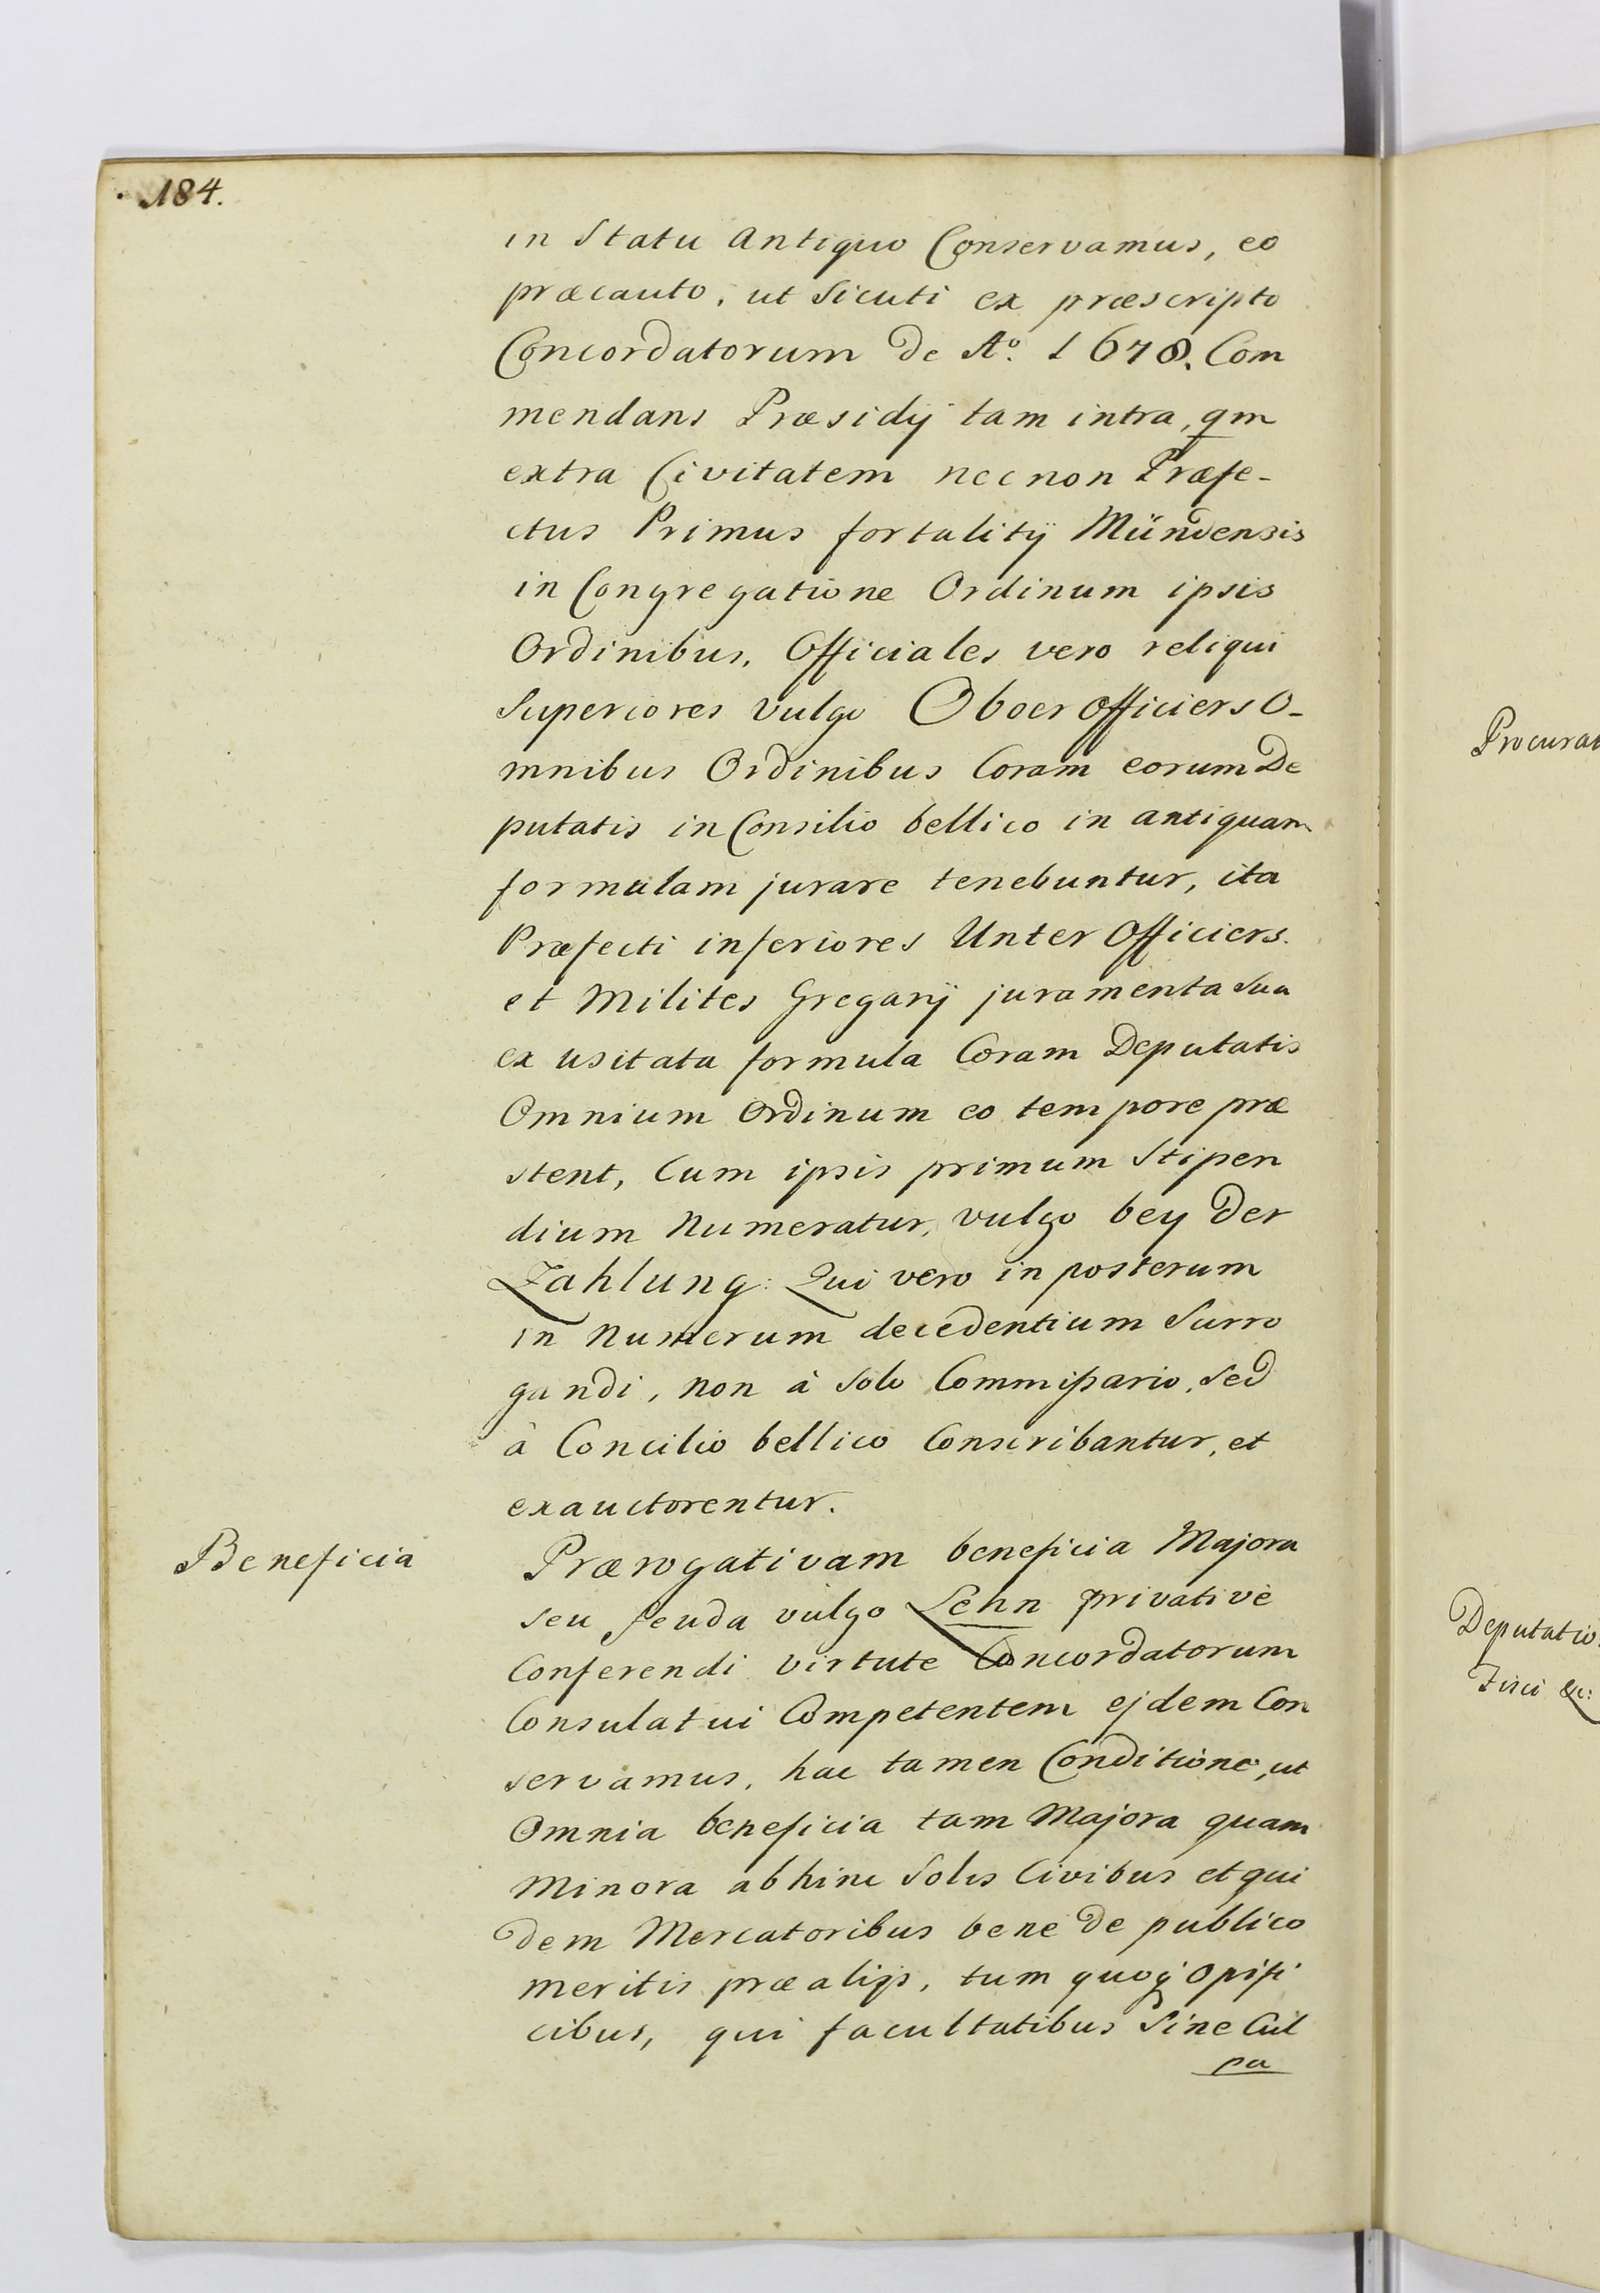 184.
in Statu Antiquo Conservamus, eo
præcauto, ut Sicuti ex præscripto
Concordatorum de Aº. 1678. Com
mendans Præsidÿ tam intra, qm
extra Civitatem necnon Præfe-
ctus Primus fortalitÿ Mündensis
in Congregatione Ordinum ipsis
Ordinibus, Officiales vero reliqui
Superiores vulgo Oboer Officiers O-
mnibus Ordinibus Coram eorum De
putatis in Consilio bellico in antiquam
formulam jurare tenebuntur, ita
Præfecti inferiores Unter Officiers.
et Milites Gregarÿ juramenta Sua
ex usitata formula Coram Deputatis
Omnium Ordinum eo tempore præ
stent, Cum ipsis primum Stipen
dium Numeratur, vulgo bey der
Zahlung: Qui vero in posterum
in Numerum decedentium Surro
gandi, non à Solo Commissario, Sed
à Concilio bellico Conscribantur, et
exauctorentur.
Beneficia
Prærogativam beneficia Majora
seu feuda vulgo Lehn privativè
Conferendi virtute Concordatorum
Consulatui Competentem ejdem Con
servamus, hac tamen Conditione, ut
Omnia beneficia tam Majora quam
Minora abhinc Solis Civibus et qui
dem Mercatoribus bene de publico
meritis præ alijs, tum quoq́ Opifi
cibus, qui facultatibus Sine Cul
pa
Procurat
Deputatio
Fisci &c: